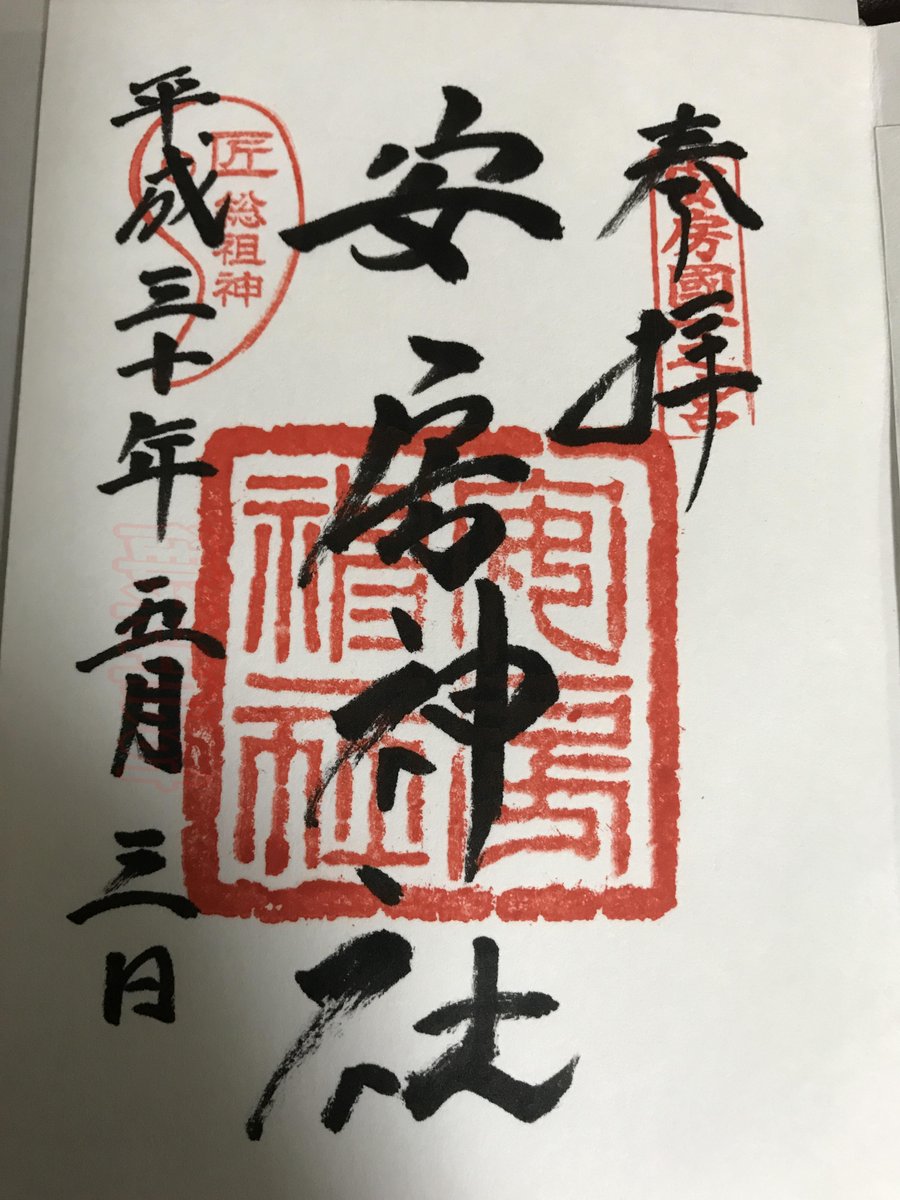 奉拝
安房國一之宮
安房神社
安房神社
匠総祖神
平成三十年五月三日